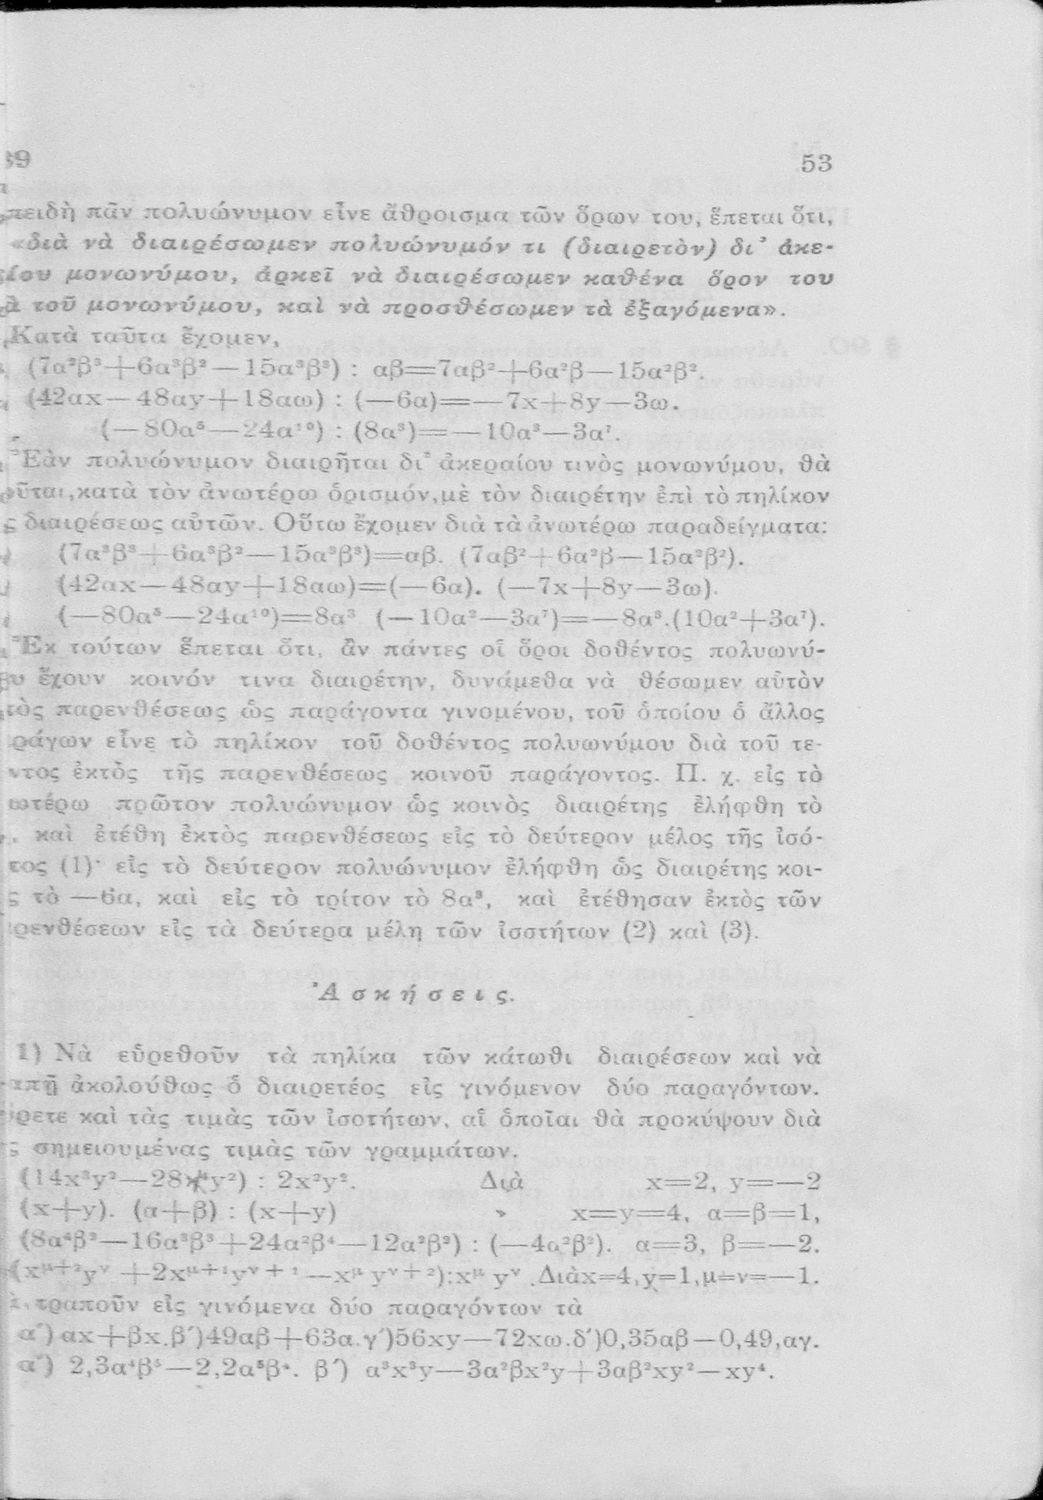 53
πᾶν πολυώνυμον εἶνε ἄθροισμα τῶν ὅρων του, ἕπεται ὅτι,
«διὰ νὰ διαιρέσωμεν πολυώνυμόν τι (διαιρετὸν) δι᾽ ἀκε-
μονωνύμου, ἀρκεῖ νὰ διαιρέσωμεν καθένα ὅρον του
τοῦ μονωνύμου, καὶ νὰ προσθέσωμεν τὰ ἐξαγόμενα».
Κατὰ ταῦτα ἔχομεν,
(7α²β³+6α³β²—15α³β³) : αβ=7αβ²+6α²β—15α²β².
(42αx—48αy+18αω) : (—6α)=—7x+8y—3ω.
(—80α⁵—24α¹⁰) : (8α³)=—10α²—3α⁷.
Ἐὰν πολυώνυμον διαιρῆται δι᾽ ἀκεραίου τινὸς μονωνύμου, θὰ
κατὰ τὸν ἀνωτέρω ὁρισμόν, μὲ τὸν διαιρέτην ἐπὶ τὸ πηλίκον
διαιρέσεως αὐτῶν. Οὕτω ἔχομεν διὰ τὰ ἀνωτέρω παραδείγματα:
(7α²β³+6α³β²—15α³β³)=αβ. (7αβ²+6α²β—15α²β²).
(42αx—48αy+18αω)=(—6α). (—7x+8y—3ω).
(—80α⁵—24α¹⁰)=8α³ (—10α²—3α⁷)=—8α³.(10α²+3α⁷).
Ἐκ τούτων ἕπεται ὅτι, ἂν πάντες οἱ ὅροι δοθέντος πολυωνύ-
ἔχουν κοινόν τινα διαιρέτην, δυνάμεθα νὰ θέσωμεν αὐτὸν
παρενθέσεως ὡς παράγοντα γινομένου, τοῦ ὁποίου ὁ ἄλλος
εἶνε τὸ πηλίκον τοῦ δοθέντος πολυωνύμου διὰ τοῦ τε-
ἐκτὸς τῆς παρενθέσεως κοινοῦ παράγοντος. Π. χ. εἰς τὸ
πρῶτον πολυώνυμον ὡς κοινὸς διαιρέτης ἐλήφθη τὸ
καὶ ἐτέθη ἐκτὸς παρενθέσεως εἰς τὸ δεύτερον μέλος τῆς ἰσό-
(1)· εἰς τὸ δεύτερον πολυώνυμον ἐλήφθη ὡς διαιρέτης κοι-
τὸ —6α, καὶ εἰς τὸ τρίτον τὸ 8α³, καὶ ἐτέθησαν ἐκτὸς τῶν
εἰς τὰ δεύτερα μέλη τῶν ἰσοτήτων (2) καὶ (3).
Ἀσκήσεις.
1) Νὰ εὑρεθοῦν τὰ πηλίκα τῶν κάτωθι διαιρέσεων καὶ νὰ
ἀκολούθως ὁ διαιρετέος εἰς γινόμενον δύο παραγόντων.
καὶ τὰς τιμὰς τῶν ἰσοτήτων, αἱ ὁποῖαι θὰ προκύψουν διὰ
σημειουμένας τιμὰς τῶν γραμμάτων.
(14x³y²—28x⁴y²) : 2x²y². Διὰ x=2, y=—2
(x+y). (α+β) : (x+y) » x=y=4, α=β=1,
(8α⁴β²—16α³β³+24α²β⁴—12α²β²) : (—4α²β²). α=3, β=—2.
(xᵘ⁺²yᵛ +2xᵘ⁺¹yᵛ⁺¹—xᵘ yᵛ⁺²):xᵘ yᵛ .Διὰx=4,y=1,μ=ν=—1.
εἰς γινόμενα δύο παραγόντων τὰ
α΄) αx+βx.β΄)49αβ+63α.γ΄)56xy—72xω.δ΄)0,35αβ—0,49,αγ.
α΄) 2,3α⁴β⁵—2,2α⁵β⁴. β΄) α³x³y—3α²βx²y+3αβ²xy²—xy⁴.